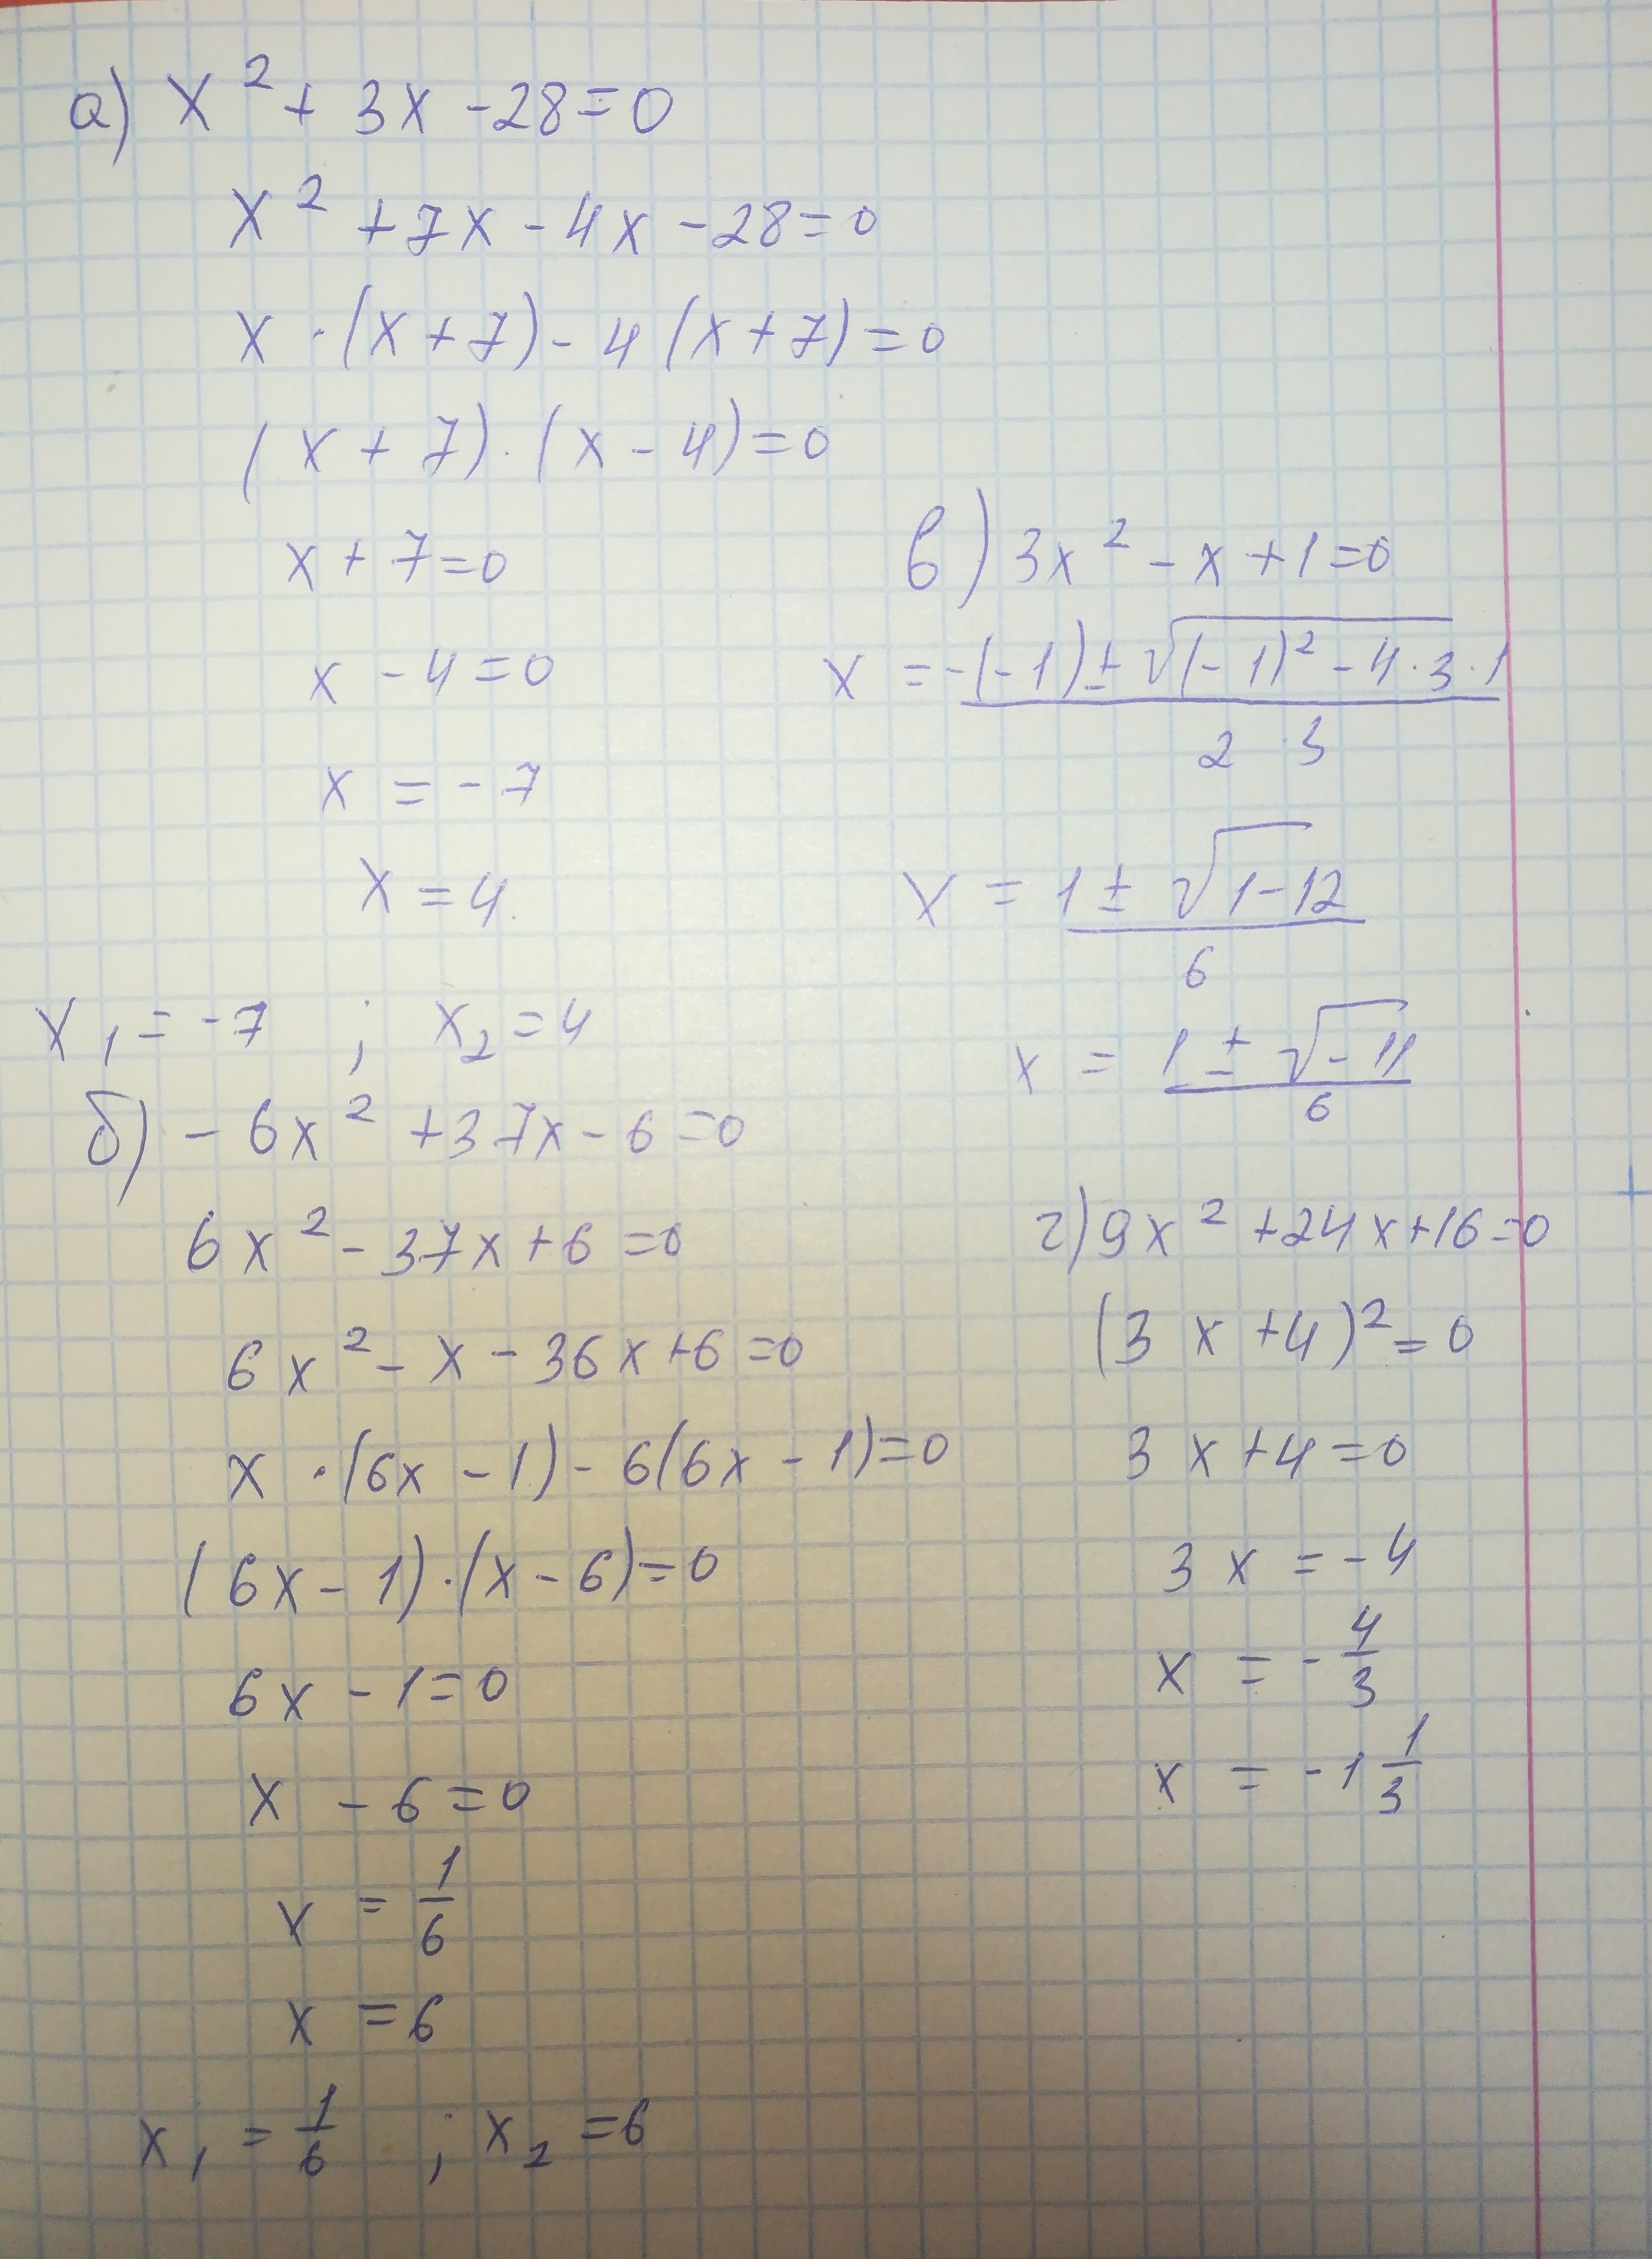 а) x² + 3x - 28 = 0
x² + 7x - 4x - 28 = 0
x · (x + 7) - 4 (x + 7) = 0
(x + 7) · (x - 4) = 0
x + 7 = 0
x - 4 = 0
x = -7
x = 4
x₁ = -7 ; x₂ = 4
б) -6x² + 37x - 6 = 0
6x² - 37x + 6 = 0
6x² - x - 36x + 6 = 0
x · (6x - 1) - 6(6x - 1) = 0
(6x - 1) · (x - 6) = 0
6x - 1 = 0
x - 6 = 0
x = 1/6
x = 6
x₁ = 1/6 ; x₂ = 6
в) 3x² - x + 1 = 0
x = -(-1) ± √(-1)² - 4 · 3 · 1 / 2 · 3
x = 1 ± √1 - 12 / 6
x = 1 ± √-11 / 6
г) 9x² + 24x + 16 = 0
(3x + 4)² = 0
3x + 4 = 0
3x = -4
x = -4/3
x = -1 1/3